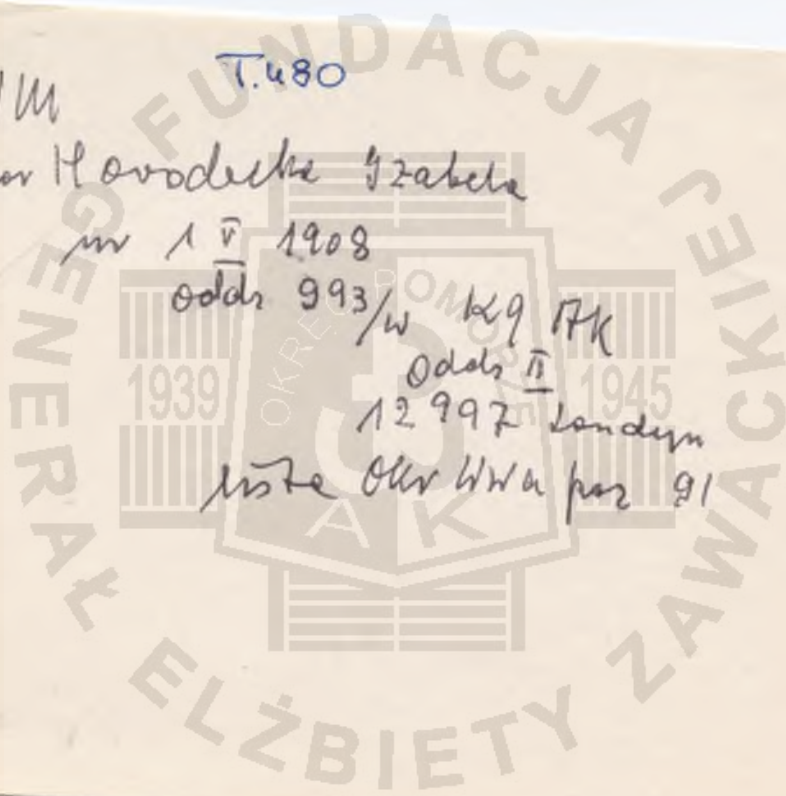 T.480
VM
Horodecka Izabela
ur 1 V 1908
oddz 993/w KG AK
Oddz II
12997 Londyn
lista Okr Wwa poz 91
FUNDACJA GENERAŁ ELŻBIETY ZAWACKIEJ
OKRĘG POMORZE
1939 1945
AK